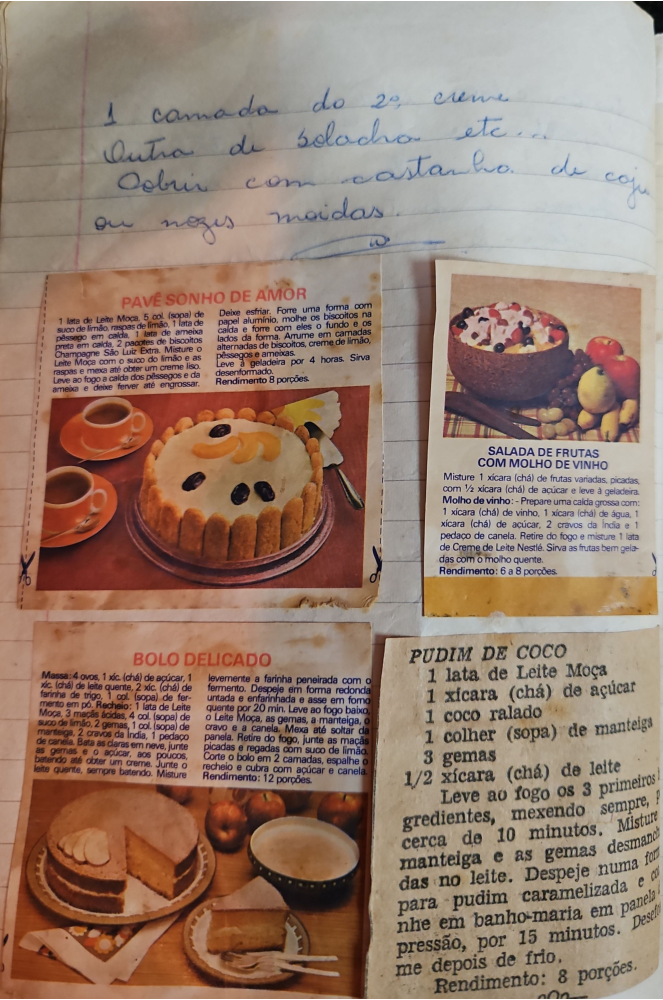 1 camada do 2º creme
Outra de bolacha etc...
Cobrir com castanha de caju
ou nozes moidas.
PAVÊ SONHO DE AMOR
1 lata de Leite Moça, 5 col. (sopa) de
suco de limão, raspas de limão, 1 lata de
pêssego em calda, 1 lata de ameixa
preta em calda, 2 pacotes de biscoitos
Champagne São Luiz Extra. Misture o
Leite Moça com o suco do limão e as
raspas e mexa até obter um creme liso.
Leve ao fogo a calda dos pêssegos e da
ameixa e deixe ferver até engrossar.
Deixe esfriar. Forre uma forma com
papel alumínio, molhe os biscoitos na
calda e forre com eles o fundo e os
lados da forma. Arrume em camadas
alternadas de biscoitos, creme de limão,
pêssegos e ameixas.
Leve à geladeira por 4 horas. Sirva
desenformado.
Rendimento 8 porções.
SALADA DE FRUTAS
COM MOLHO DE VINHO
Misture 1 xícara (chá) de frutas variadas, picadas,
com ½ xícara (chá) de açúcar e leve à geladeira.
Molho de vinho: - Prepare uma calda grossa com:
1 xícara (chá) de vinho, 1 xícara (chá) de água, 1
xícara (chá) de açúcar, 2 cravos da Índia e 1
pedaço de canela. Retire do fogo e misture 1 lata
de Creme de Leite Nestlé. Sirva as frutas bem gela-
das com o molho quente.
Rendimento: 6 a 8 porções.
BOLO DELICADO
Massa: 4 ovos, 1 xíc. (chá) de açúcar, 1
xíc. (chá) de leite quente, 2 xíc. (chá) de
farinha de trigo, 1 col. (sopa) de fer-
mento em pó. Recheio: 1 lata de Leite
Moça, 3 maçãs ácidas, 4 col. (sopa) de
suco de limão, 2 gemas, 1 col. (sopa) de
manteiga, 2 cravos da Índia, 1 pedaço
de canela. Bata as claras em neve, junte
as gemas e o açúcar, aos poucos,
batendo até obter um creme. Junte o
leite quente, sempre batendo. Misture
levemente a farinha peneirada com o
fermento. Despeje em forma redonda
untada e enfarinhada e asse em forno
quente por 20 min. Leve ao fogo baixo,
o Leite Moça, as gemas, a manteiga, o
cravo e a canela. Mexa até soltar da
panela. Retire do fogo, junte as maçãs
picadas e regadas com suco de limão.
Corte o bolo em 2 camadas, espalhe o
recheio e cubra com açúcar e canela.
Rendimento: 12 porções.
PUDIM DE COCO
1 lata de Leite Moça
1 xícara (chá) de açúcar
1 coco ralado
1 colher (sopa) de manteiga
3 gemas
1/2 xícara (chá) de leite
Leve ao fogo os 3 primeiros
gredientes, mexendo sempre,
cerca de 10 minutos. Misture
manteiga e as gemas desmanc
das no leite. Despeje numa for
para pudim caramelizada e
nhe em banho-maria em panela
pressão, por 15 minutos.
me depois de frio.
Rendimento: 8 porções.